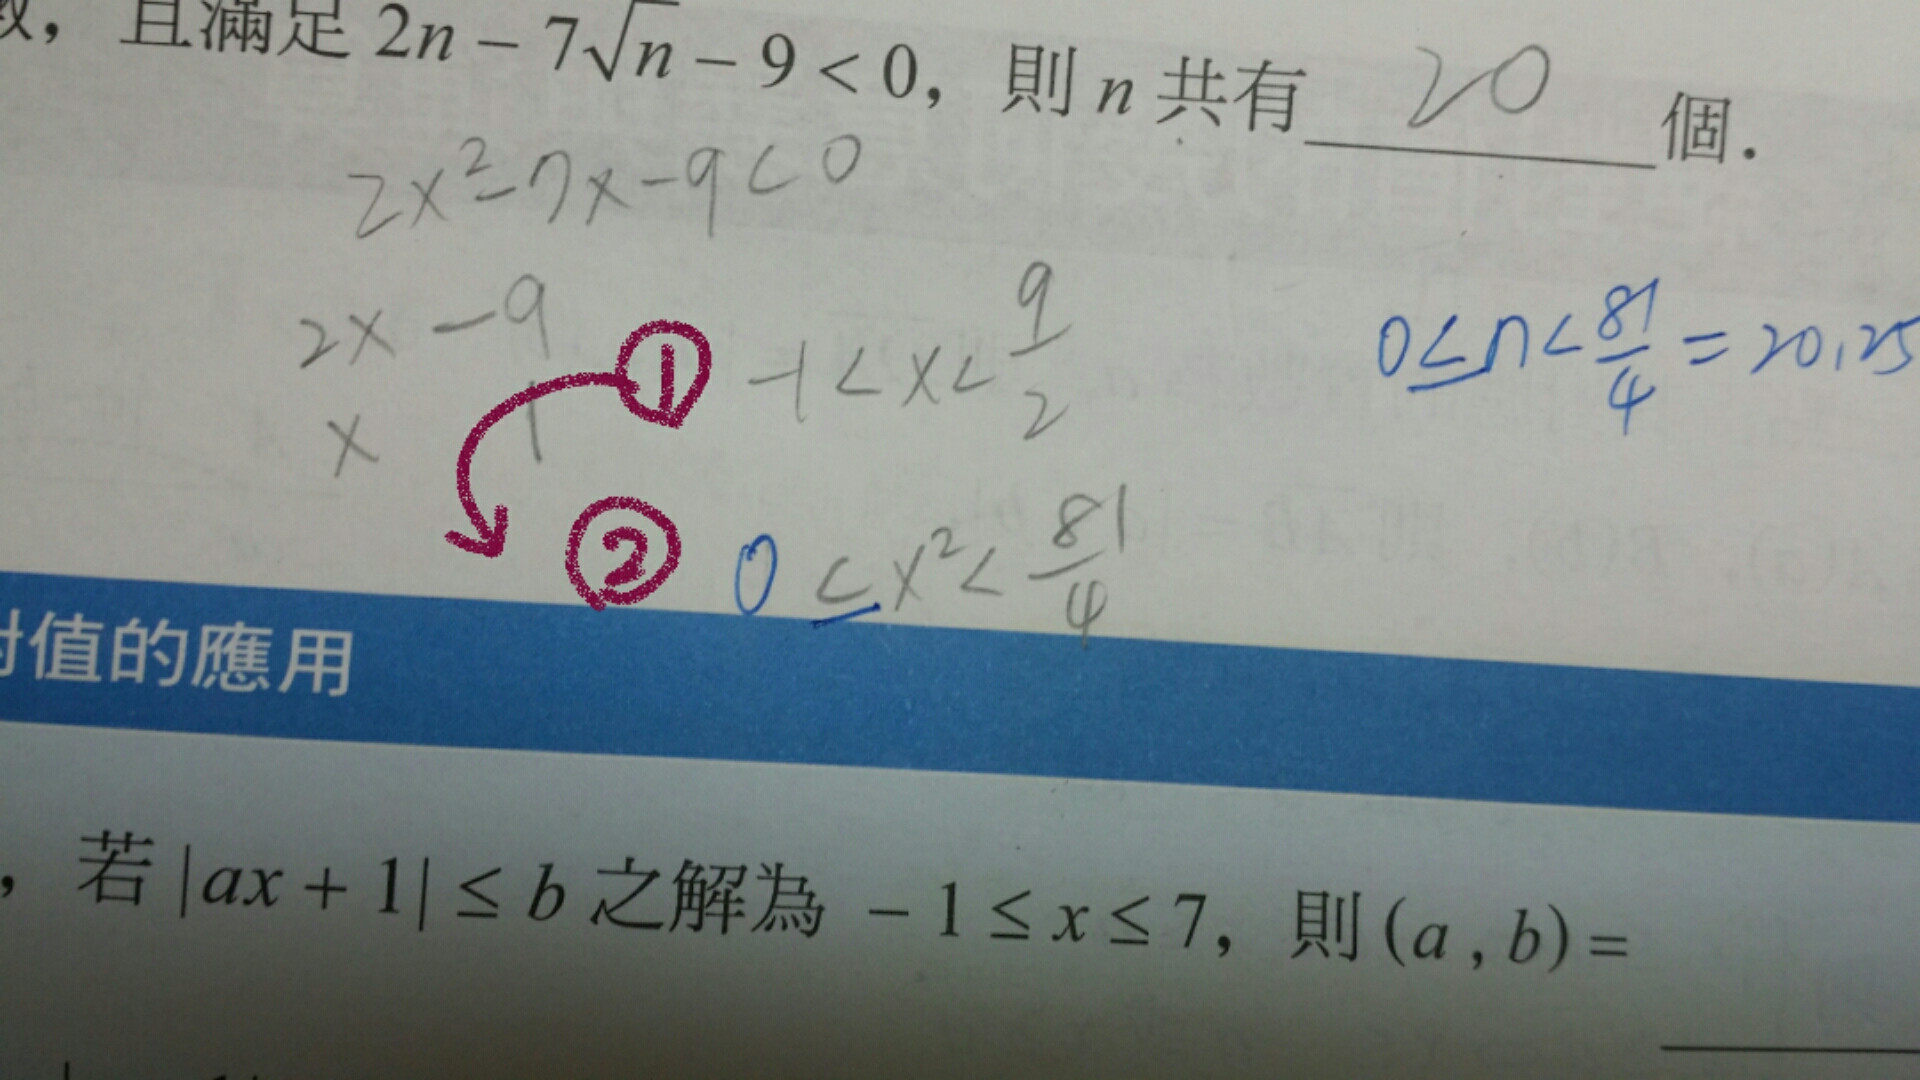 ，且滿足 2n − 7√n − 9 < 0，則 n 共有 20 個．
2x² − 7x − 9 < 0
2x − 9
x 1
① −1 < x < 9/2
0 ≤ n < 81/4 = 20.25
② 0 ≤ x² < 81/4
值的應用
，若 |ax + 1| ≤ b 之解為 − 1 ≤ x ≤ 7，則 (a , b) =